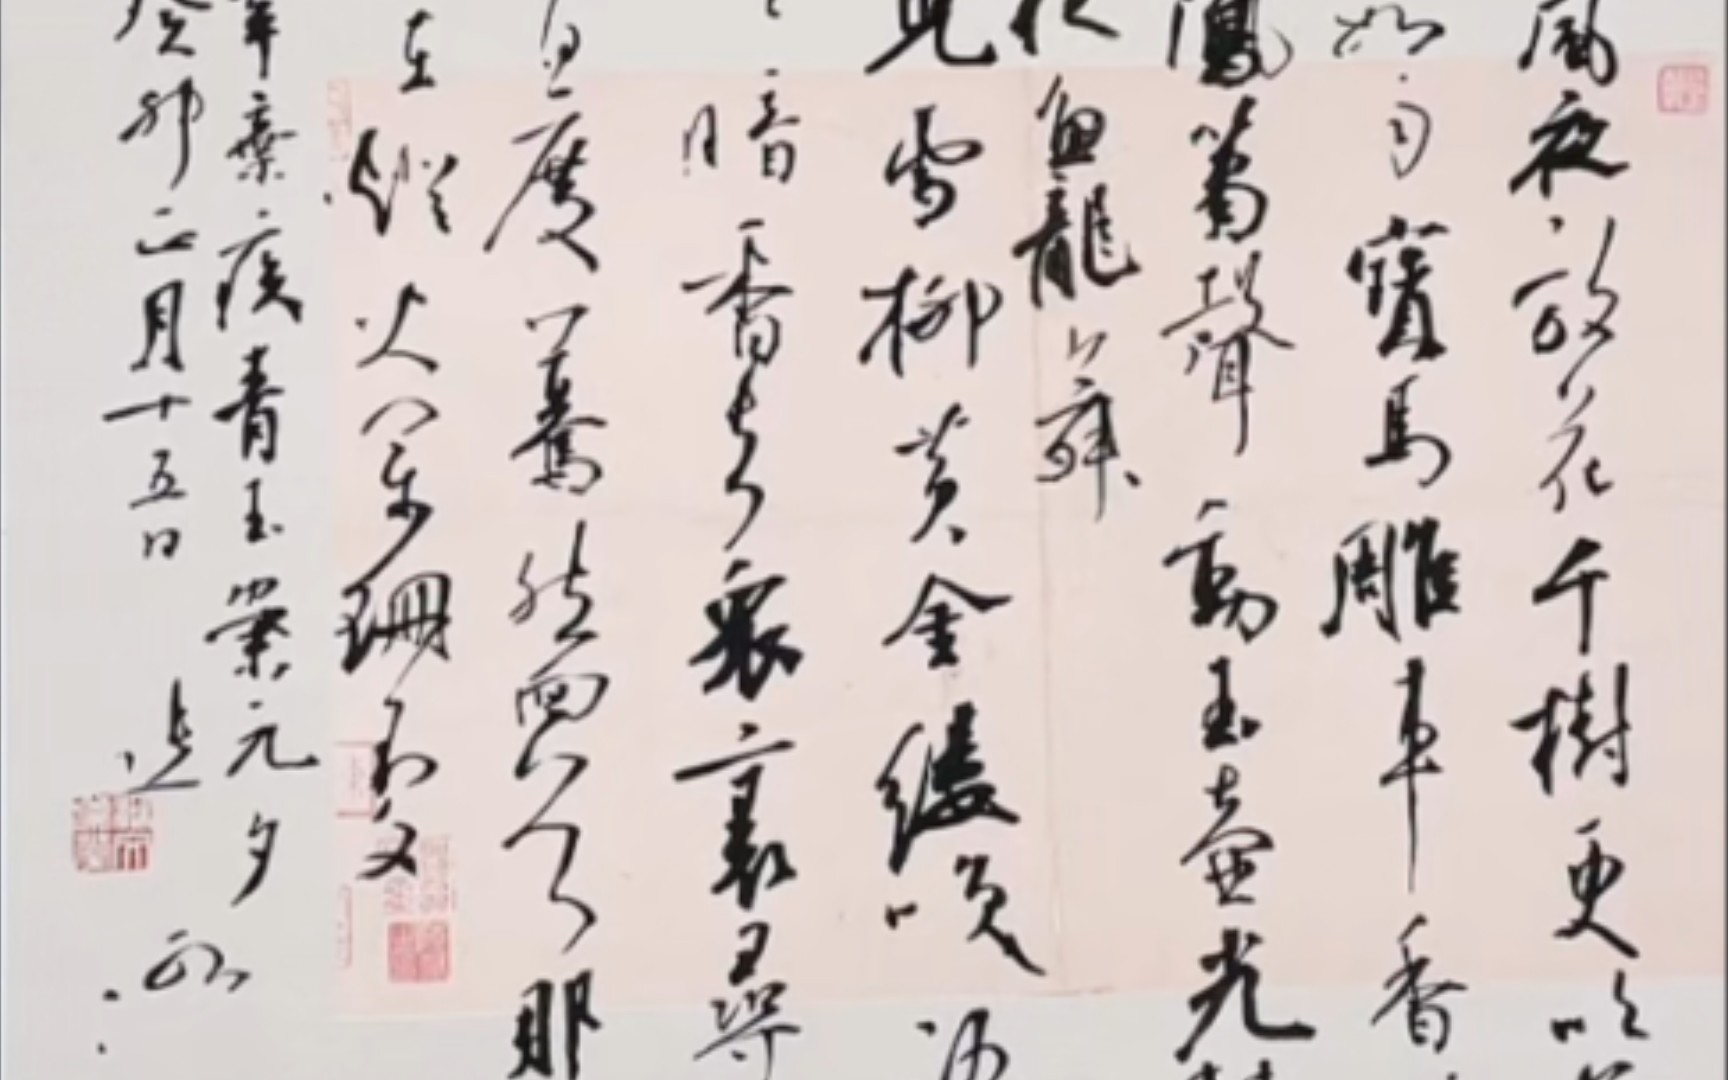 風夜放花千樹更吹
如雨寶馬雕車香
鳳簫聲動玉壺光
夜魚龍舞
兒雪柳黃金縷咲語
暗香去眾裏尋
百度驀然回首那
在燈火闌珊處
辛棄疾青玉案元夕
癸卯正月十五日